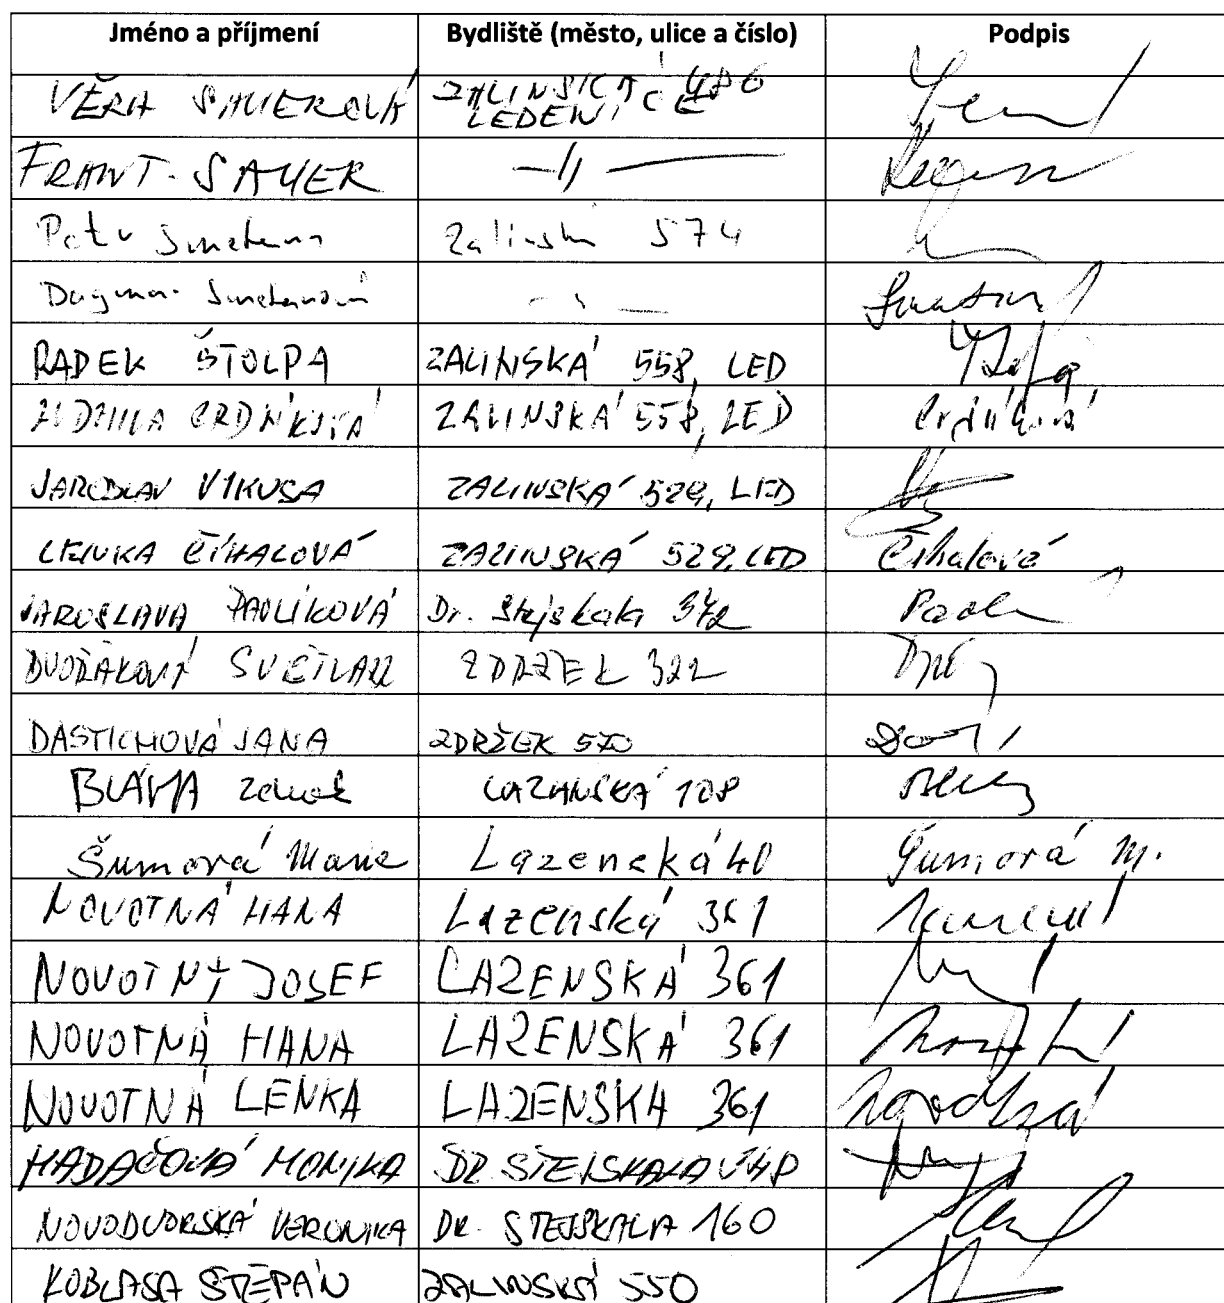 Jméno a příjmení Bydliště (město, ulice a číslo) Podpis
VĚRA SAUEROVÁ ZALINSKÁ 486
LEDENICE
FRANT. SAUER —//—
Petr Smetana Zalinská 574
Dagmar Smetanová
RADEK ŠTOLPA ZALINSKÁ 558, LED
ZALINSKÁ 558, LED
JAROSLAV VIKUSA ZALINSKÁ 529, LED
LENKA ČÍHALOVÁ ZALINSKÁ 529, LED Číhalová
JAROSLAVA PAVLÍKOVÁ Dr. Stejskala 372
DVOŘÁKOVÁ ZDRŽEK 322
DASTICHOVÁ JANA ZDRŽEK 570
BLÁHA 108
Šumová Marie Lazenská 40 Šumová M.
NOVOTNÁ HANA Lazenská 361
NOVOTNÝ JOSEF LAZENSKÁ 361
NOVOTNÁ HANA LAZENSKÁ 361
NOVOTNÁ LENKA LAZENSKÁ 361
HADAČOVÁ MONIKA DR. STEJSKALA
NOVODVORSKÁ VERONIKA DR. STEJSKALA 160
KOBLASA ŠTĚPÁN ZALINSKÁ 550